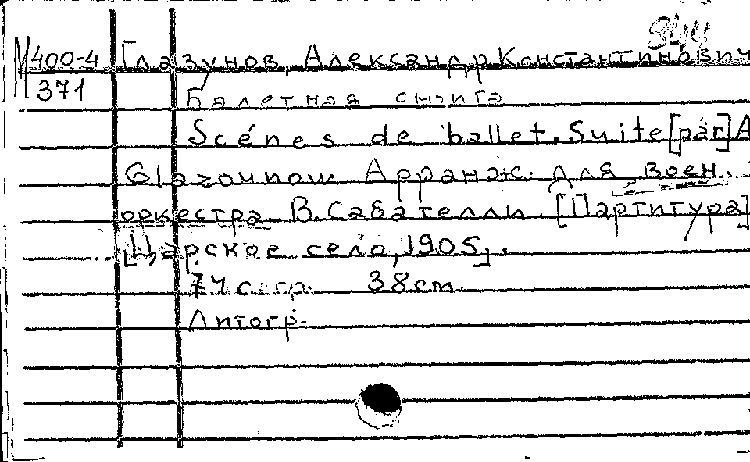 М400-4 Глазунов, Александр Константинович
371
Балетная сюита
Scénes de ballet. Suite [par] A
Glazounow Арранж. для воен.
оркестра В. Сабателли. [Партитура]
[Царское село, 1905].
74 стр. 38 cm
Литогр.